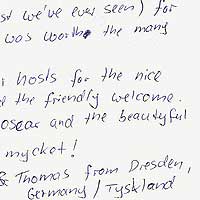 st we've ever seen) for
was worth the many
hosts for the nice
the friendly welcome.
oscar and the beautyful
mycket!
& Thomas from Dresden,
Germany / Tyskland